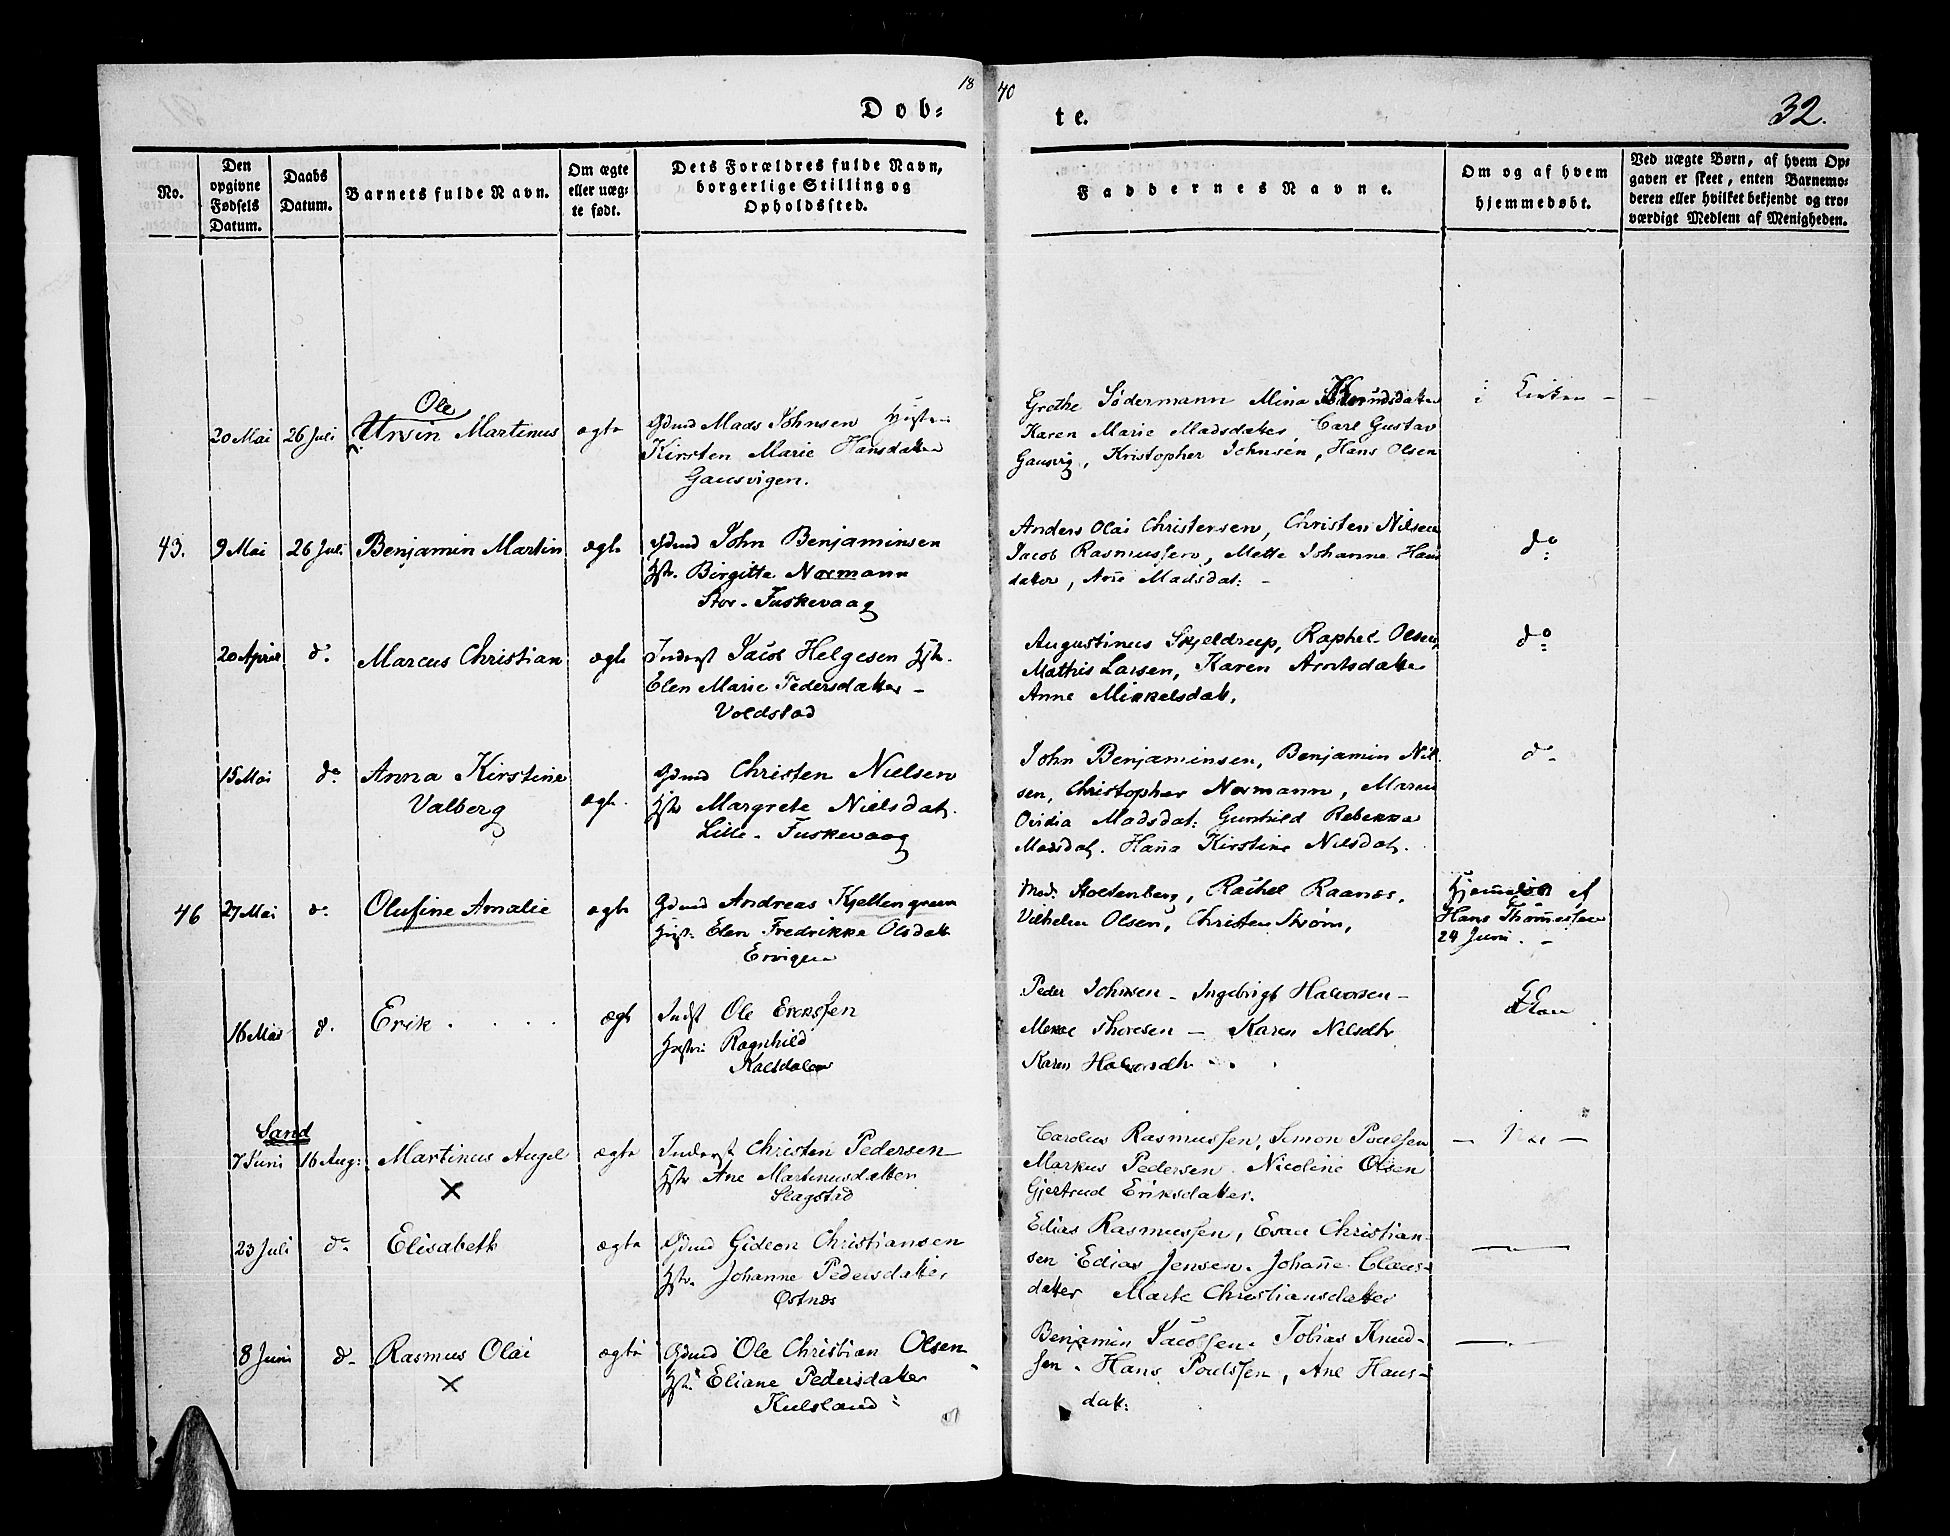 18 40
Døb- te.
32.
No.
Den opgivne Fødsels Datum.
Daabs Datum.
Barnets fulde Navn.
Om ægte eller uæg- te født.
Dets Forældres fulde Navn, borgerlige Stilling og Opholdssted.
Faddernes Navne.
Om og af hvem hjemmedøbt.
Ved uægte Børn, af hvem Op- gaven er skeet, enten Barnemo- deren eller hvilket bekjendt og tro- værdigt Medlem af Menigheden.
Ole
20 Mai 26 Juli Ursin Martinus ægte
Gdmd Mads Johnsen Hustru
Kirsten Marie Hansdatter
Gausvigen.
Grethe Södermann Mina Knudsdatter
Karen Marie Madsdatter, Carl Gustav
Gausvig, Kristopher Johnsen, Hans Olsen
i Kirken -
43. 9 Mai 26 Juli Benjamin Martin ægte
Gdmd John Benjaminsen
Hstr. Birgitte Normann
Stor-Fuskevaag
Anders Olai Christensen, Christen Nilsen
Jacob Rasmussen, Mette Johanne Hans
datter, Ane Madsdat: -
do
20 April do. Marcus Christian ægte
Inderst Jacob Helgesen Hstr.
Elen Marie Pedersdatter -
Voldstad
Augustinus Skjeldrup, Raphel Olsen,
Mathis Larsen, Karen Arntsdatter
Anne Mikkelsdatt,
do
15 Mai do Anna Kirstine
Valberg
ægte.
Gdmd Christen Nielsen
Hstr Margrete Nielsdat.
Lille-Fuskevaag
John Benjaminsen, Benjamin Nil
sen, Christopher Normann, Maren
Ovidia Madsdat: Gunhild Rebekka
Madsdat. Hana Kirstine Nilsdat.
do
46 27 Mai do. Olufine Amalie ægte
Gdmd Andreas Kjellingreen
Hust. Elen Fredrikke Olsdatt
Ervigen
Mad. Stoltenberg, Rachel Raanæs,
Vilhelm Olsen, Christen Strøm,
Hjemmedøbt af
Hans Thommesen
24 Juni. -
16 Mai do. Erik . . . . ægte
Indst Ole Erikssen
Hustru Ragnhild
Kalsdalen
Peder Johnsen - Ingebrigt Halvorsen -
Thoresen - Karen Nilsdtr
Karen Halvorsdtr
Sand
7 Juni 16 Aug: Martinus Angel ægte
X
Inderst Christen Pedersen
Hstr Ane Martinusdatter
Slagstad
Carolus Rasmussen, Simon Poulsen
Markus Pedersen. Nicoline Olsen
Gjertrud Eriksdatter.
- Nei -
23 Juli do Elisabeth ægte
Gdmd Gideon Christiansen
Hstr. Johanne Pedersdatter
Østnæs
Elias Rasmussen, Esau Christian-
sen Edias Jensen. Johane Claus-
datter Marte Christiansdatter
8 Juni do Rasmus Olai ægte
X
Gdmd Ole Christian Olsen
Hstr. Eliane Pedersdatter
Kulsland
Benjamin Jacobsen. Tobias Knud-
sen. Hans Poulssen, Ane Hans-
datt: